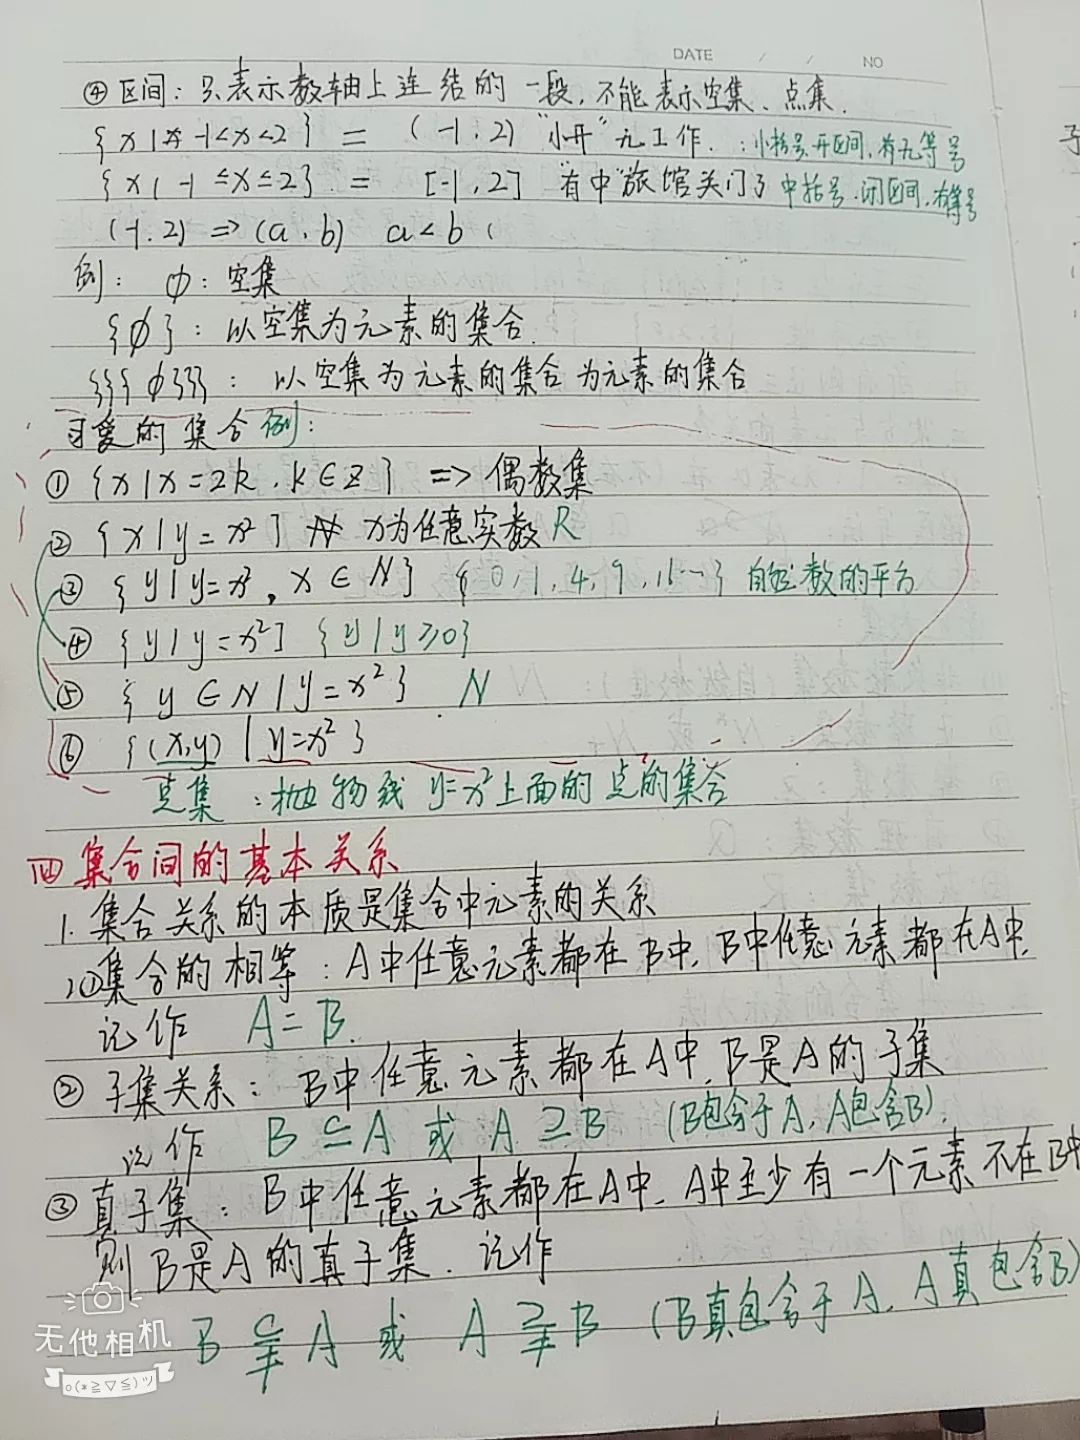 DATE / / NO
④区间：只表示数轴上连结的一段，不能表示空集、点集.
{x|-1<x<2} = (-1,2) “小开”元工作.：小括号,开区间,有无等号
{x|-1≤x≤2} = [-1,2] 有中“旅馆关门了 中括号.闭区间,有等号
(-1.2) => (a,b) a<b (
例： ∅：空集
{∅}：以空集为元素的集合.
{{{∅}}}：以空集为元素的集合为元素的集合
可爱的集合例：
① {x|x=2k,k∈Z} => 偶数集
② {x|y=x²} x为任意实数R
③ {y|y=x²,x∈N} {0,1,4,9,16…} 自然数的平方
④ {y|y=x²] {y|y≥0}
⑤ {y∈N|y=x²} N
⑥ {(x,y)|y=x²}
点集：抛物线y=x²上面的点的集合
四集合间的基本关系
1.集合关系的本质是集合中元素的关系
2①集合的相等：A中任意元素都在B中,B中任意元素都在A中,
记作 A=B.
②子集关系：B中任意元素都在A中,B是A的子集
记作 B⊆A 或 A⊇B (B包含于A,A包含B).
③真子集：B中任意元素都在A中,A中至少有一个元素不在B中
则B是A的真子集.记作
B⫋A 或 A⫌B (B真包含于A,A真包含B)
无他相机
o(*≧▽≦)ツ